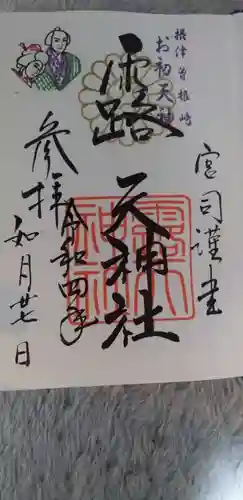 摂津曽根崎
お初天神
宮司謹書
露
天神社
露天神社
令和四年
参拝
如月廿七日